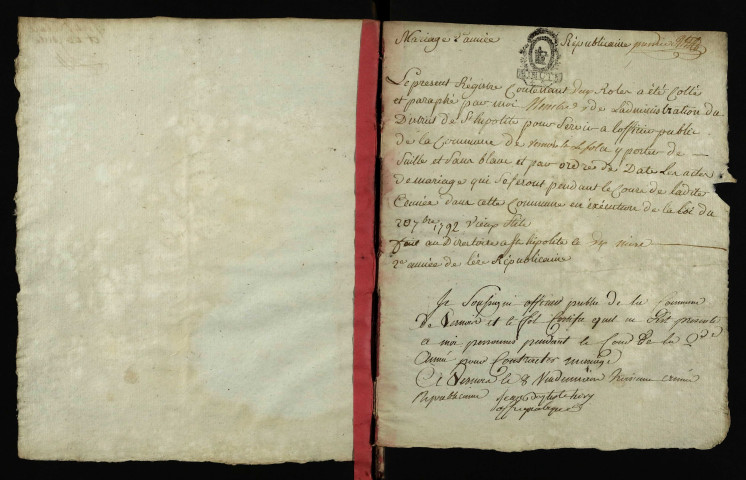 Mariage l'année Républicaine
Le present Régistre Contenant deux Roles a été Cotté
et paraphé par moi Membre de L'administration du
District de St hipolite pour Servir a l'officier public
de la Commune de le fol a y porter de
Suitte et Sans blanc et par ordre de Date Les actes
de mariage qui Se feront pendant le Cours de ladite
année dans cette Commune en execution de la loi du
20 7bre 1792 vieux Stile
fait au Directoire a St hipolite le nivose
2e année de l'ère Républicaine
Je Soussigné officier public de la Commune
de et le fol Certifie qu'il ne s'est presenté
a moi personnes pendant le Cours de la 2de
Année pour Contracter mariage
le 8 Vendemiaire troisieme année
Republicaine